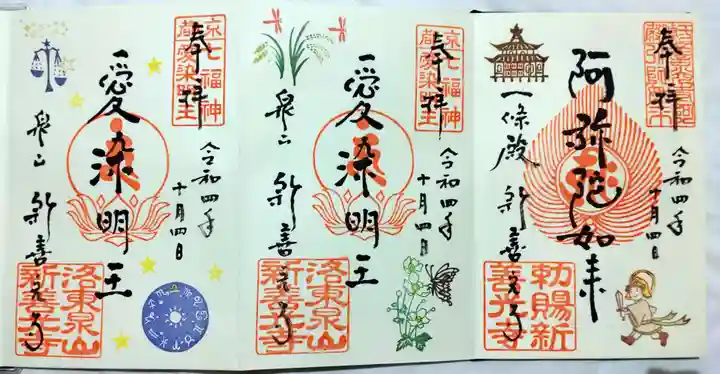 奉拝
阿弥陀如来
一條殿 新善光寺
令和四年
十月四日
勅賜新
善光寺
奉拝
京七福神
愛染明王
泉山 新善光寺
令和四年
十月四日
洛東泉山
新善光寺
奉拝
京七福神
愛染明王
泉山 新善光寺
令和四年
十月四日
洛東泉山
新善光寺